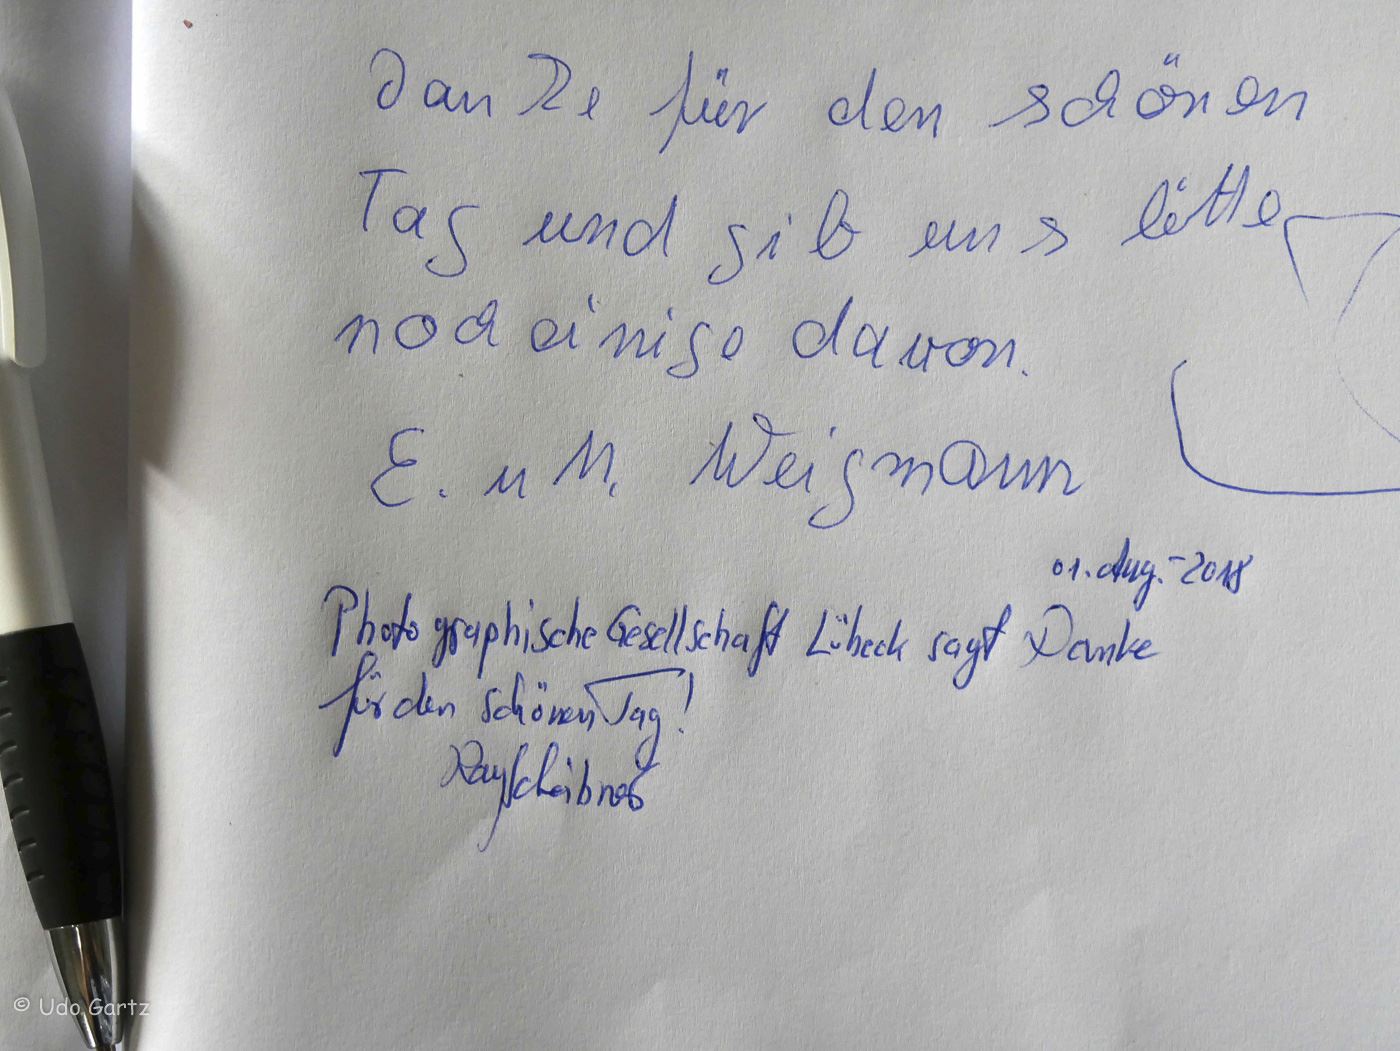 Danke für den schönen
Tag und gib uns bitte
noch einige davon.
E. u M. Weigmann
01. Aug. - 2018
Photographische Gesellschaft Lübeck sagt Danke
für den schönen Tag!
Ray Scheibner
© Udo Gartz